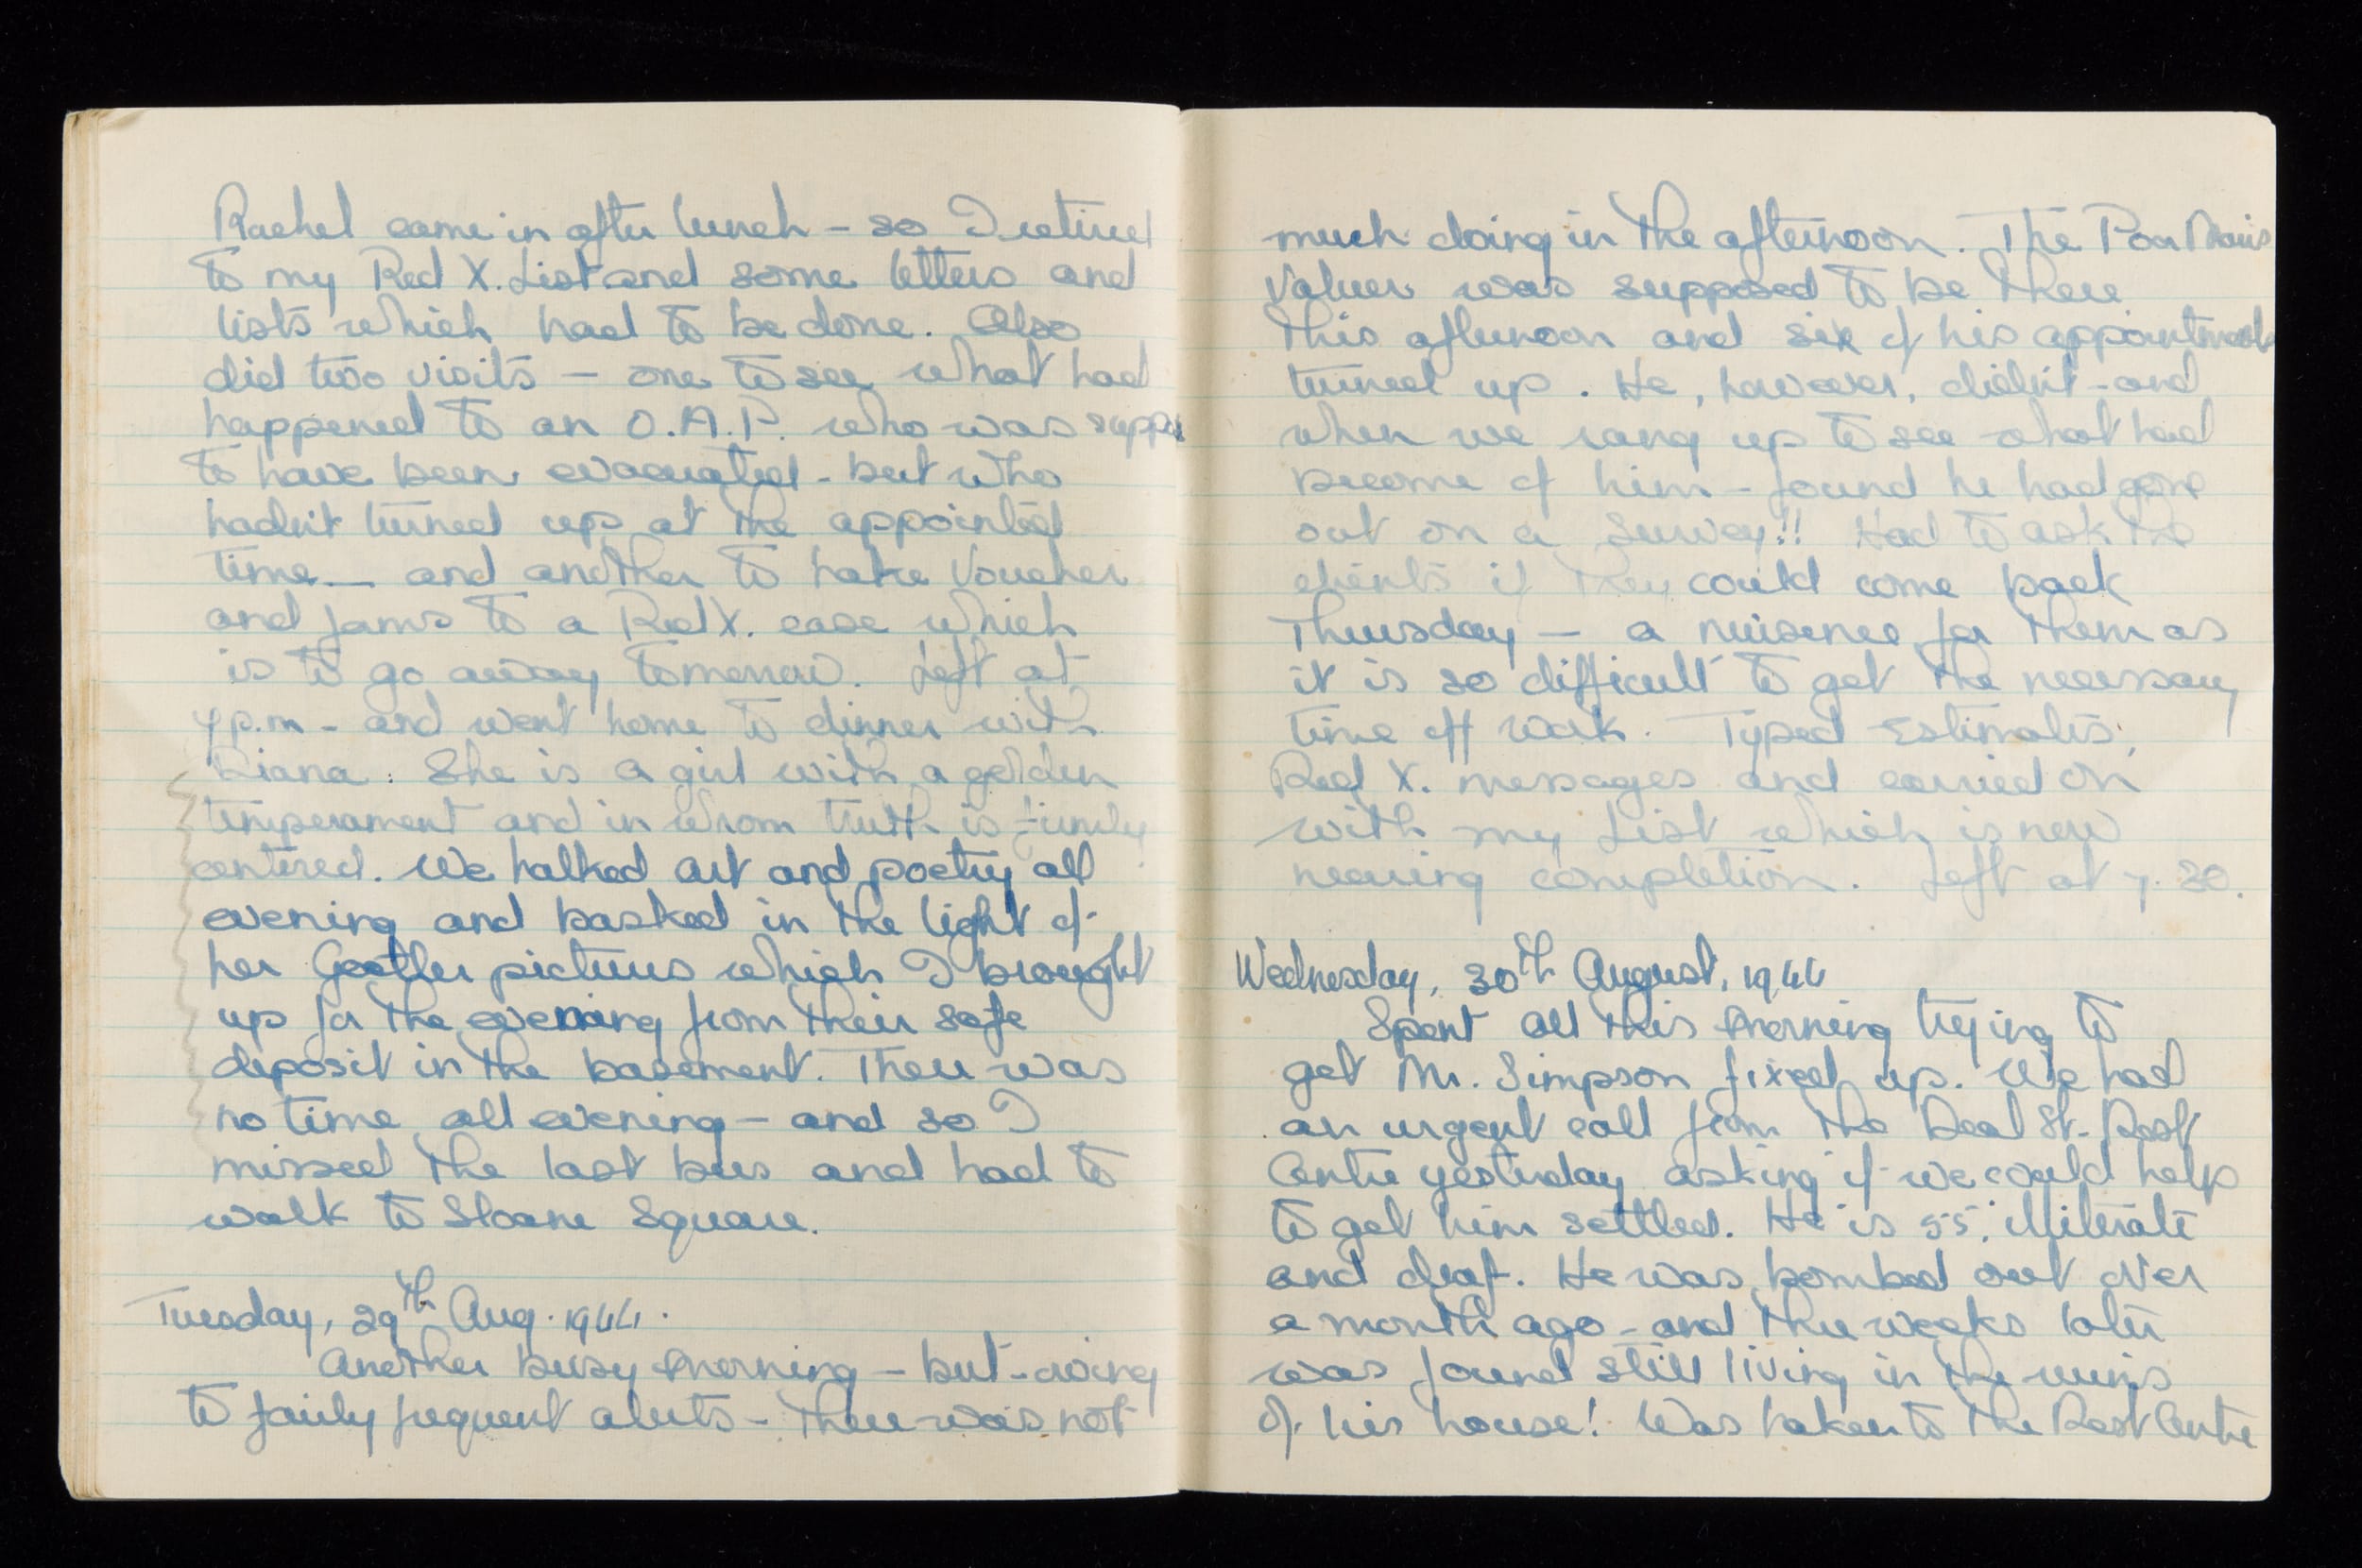 Rachel came in after lunch - so I retired
to my Red X. List and some letters and
lists which had to be done. Also
did two visits - one to see what had
happened to an O.A.P. who was suppos
to have been evacuated - but who
hadn't turned up at the appointed
time - and another to take Voucher
and Jams to a Red X. case which
is to go away tomorrow. Left at
7 p.m - and went home to dinner with
Diana. She is a girl with a golden
temperament and in whom truth is firmly
centered. We talked art and poetry all
evening and basked in the light of
her pictures which I brought
up for the evening from their safe
deposit in the basement. There was
no time all evening - and so I
missed the last bus and had to
walk to Sloane Square.
Tuesday, 29th Aug. 1944.
Another busy morning - but - owing
to fairly frequent alerts - there was not
much doing in the afternoon. The
Valuer was supposed to be there
this afternoon and six of his appointments
turned up. He, however, didn't - and
when we rang up to see what had
become of him - found he had gone
out on a Survey!! Had to ask the
clients if they could come back
Thursday - a nuisence for them as
it is so difficult to get the necessary
time off work. Typed Estimates,
Red X. messages and carried on
with my List which is now
nearing completion. Left at 7.30.
Wednesday, 30th August, 1944
Spent all this morning trying to
get Mr. Simpson fixed up. We had
an urgent call from the Deal St. Rest
Centre yesterday asking if we could help
to get him settled. He is 55, illiterate
and deaf. He was bombed out over
a month ago - and three weeks later
was found still living in the ruins
of his house! Was taken to the Rest Centre